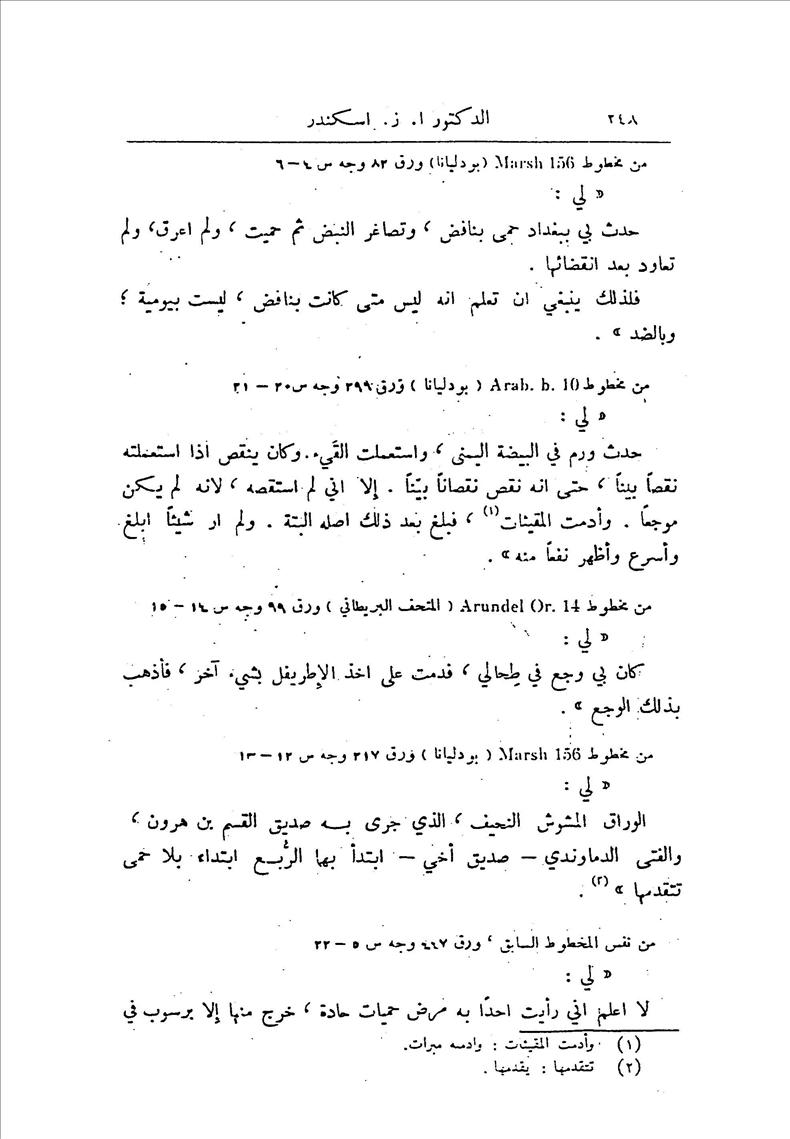 ٢٤٨ الدكتور ا. ز. اسكندر
من مخطوط Marsh 156 (بودليانا) ورق ٨٢ وجه س ٤ – ٦
« لي :
حدث بي ببغداد حمى بنافض ، وتصاغر النبض ثم حميت ، ولم اعرق، ولم
تعاود بعد انقضائها .
فلذلك ينبغي ان تعلم انه ليس متى كانت بنافض ، ليست بيومية ؛
وبالضد » .
من مخطوط Arab. b. 10 ( بودليانا ) ورق ٢٩٩ وجه س ٢٠ – ٢١
« لي :
حدث ورم في البيضة اليمنى ، واستعملت القَيء. وكان ينقص اذا استعملته
نقصاً بيناً ، حتى انه نقص نقصاناً بيّناً . إلا اني لم استقصه ، لانه لم يكن
موجعاً . وأدمت المقيئات(١) ، فبلغ بعد ذلك اصله البتة . ولم ار شيئاً ابلغ
وأسرع وأظهر نفعاً منه » .
من مخطوط Arundel Or. 14 ( المتحف البريطاني ) ورق ٩٩ وجه س ١٤ – ١٥
« لي :
كان بي وجع في طِحالي ، فدمت على اخذ الإطريفل بشيء آخر ، فأذهب
بذلك الوجع » .
من مخطوط Marsh 156 ( بودليانا ) ورق ٢١٧ وجه س ١٢ – ١٣
« لي :
الوراق المشوش النحيف ، الذي جرى به صديق القسم بن هرون ،
والفتى الدماوندي – صديق أخي – ابتدأ بها الرُّبع ابتداء بلا حمى
تتقدمها » (٢) .
من نفس المخطوط السابق ، ورق ٤٤٧ وجه س ٥ – ٢٢
« لي :
لا اعلم اني رأيت احدًا به مرض حميات حادة ، خرج منها إلا برسوب في
(١) وأدمت المقيئات : وادمه مبرات.
(٢) تتقدمها : يقدمها .